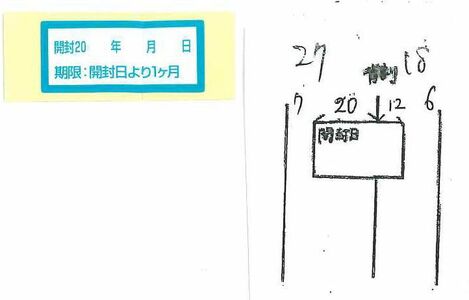 開封20 年 月 日
期限:開封日より1ヶ月
27 18
7 20 12 6
開封日